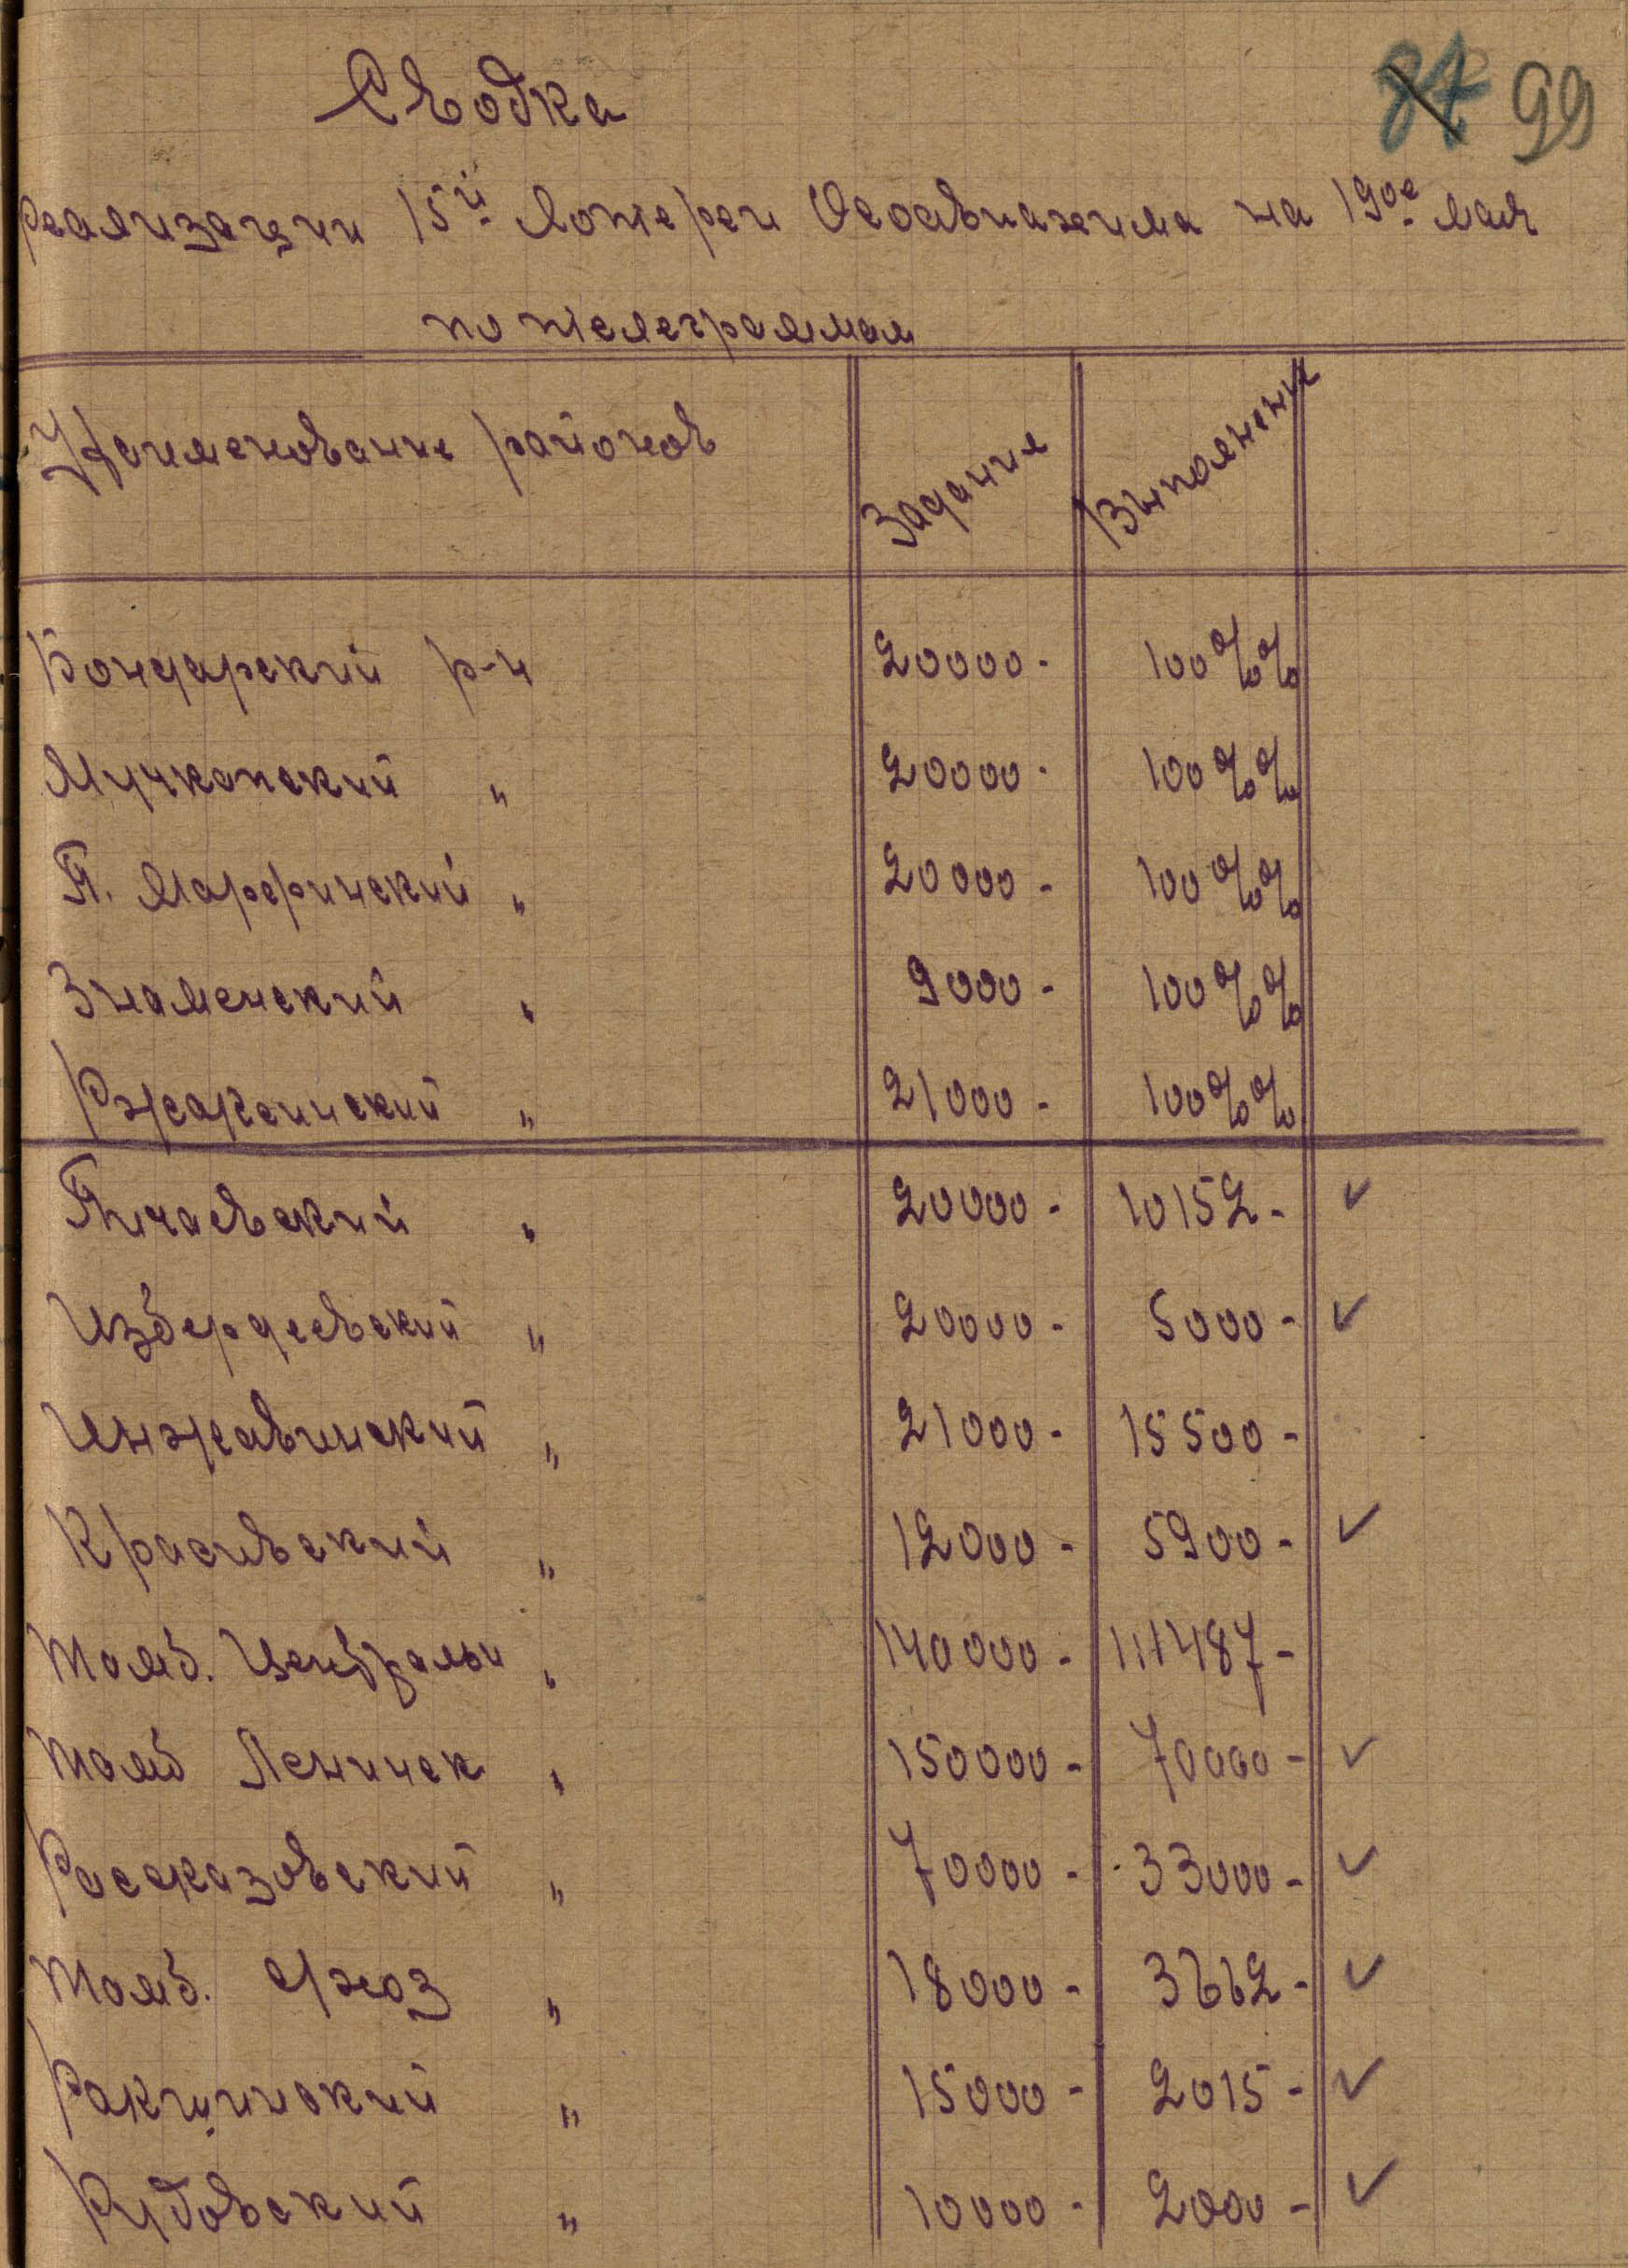 99
Сводка
реализации 15й Лотереи Осоавиахима на 19ое мая
по телеграммам
Наименование районов Задание Выполнение
Бондарский р-н 20000- 100%%
Мучкапский " 20000- 100%%
П. Марфинский " 20000- 100%%
Знаменский " 9000- 100%%
Ржаксинский " 21000- 100%%
Пичаевский " 20000- 10152- ✓
Избердеевский " 20000- 5000- ✓
Инжавинский " 21000- 15500-
Красивский " 12000- 5900- ✓
Тамб. Центральн " 140000- 111487-
Тамб Ленинск " 150000- 70000- ✓
Рассказовский " 70000- 33000- ✓
Тамб. с/хоз " 18000- 3662- ✓
Ракшинский " 15000- 2015- ✓
Рудовский " 10000- 2000- ✓